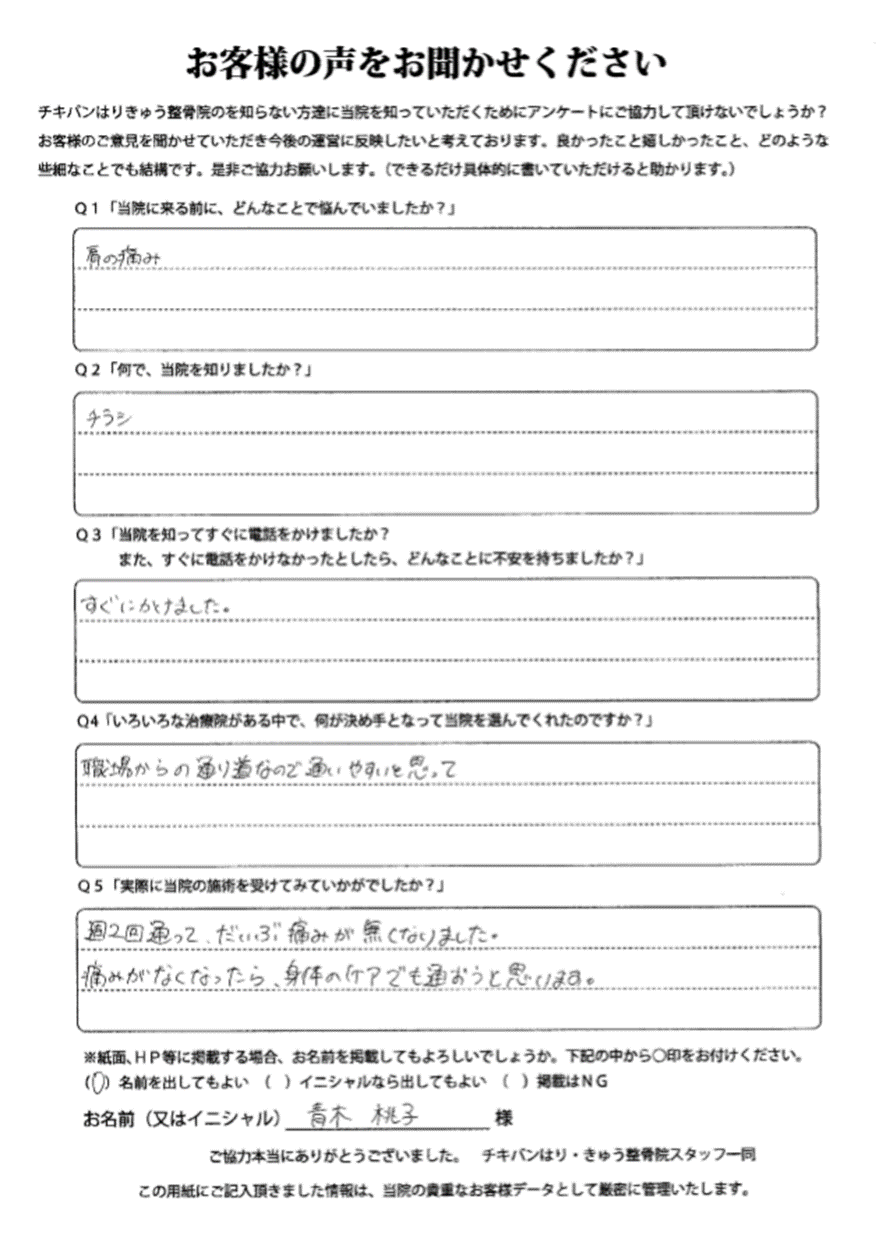 お客様の声をお聞かせください
チキバンはりきゅう整骨院のを知らない方達に当院を知っていただくためにアンケートにご協力して頂けないでしょうか？
お客様のご意見を聞かせていただき今後の運営に反映したいと考えております。良かったこと嬉しかったこと、どのような
些細なことでも結構です。是非ご協力お願いします。（できるだけ具体的に書いていただけると助かります。）
Q１「当院に来る前に、どんなことで悩んでいましたか？」
肩の痛み
Q２「何で、当院を知りましたか？」
チラシ
Q３「当院を知ってすぐに電話をかけましたか？
また、すぐに電話をかけなかったとしたら、どんなことに不安を持ちましたか？」
すぐにかけました。
Q4「いろいろな治療院がある中で、何が決め手となって当院を選んでくれたのですか？」
職場からの通り道なので通いやすいと思って
Q５「実際に当院の施術を受けてみていかがでしたか？」
週2回通って、だいぶ痛みが無くなりました。
痛みがなくなったら、身体のケアでも通おうと思います。
※紙面、ＨＰ等に掲載する場合、お名前を掲載してもよろしいでしょうか。下記の中から〇印をお付けください。
(〇) 名前を出してもよい （ ）イニシャルなら出してもよい （ ）掲載はＮＧ
お名前（又はイニシャル） 青木 桃子 様
ご協力本当にありがとうございました。 チキバンはり・きゅう整骨院スタッフ一同
この用紙にご記入頂きました情報は、当院の貴重なお客様データとして厳密に管理いたします。